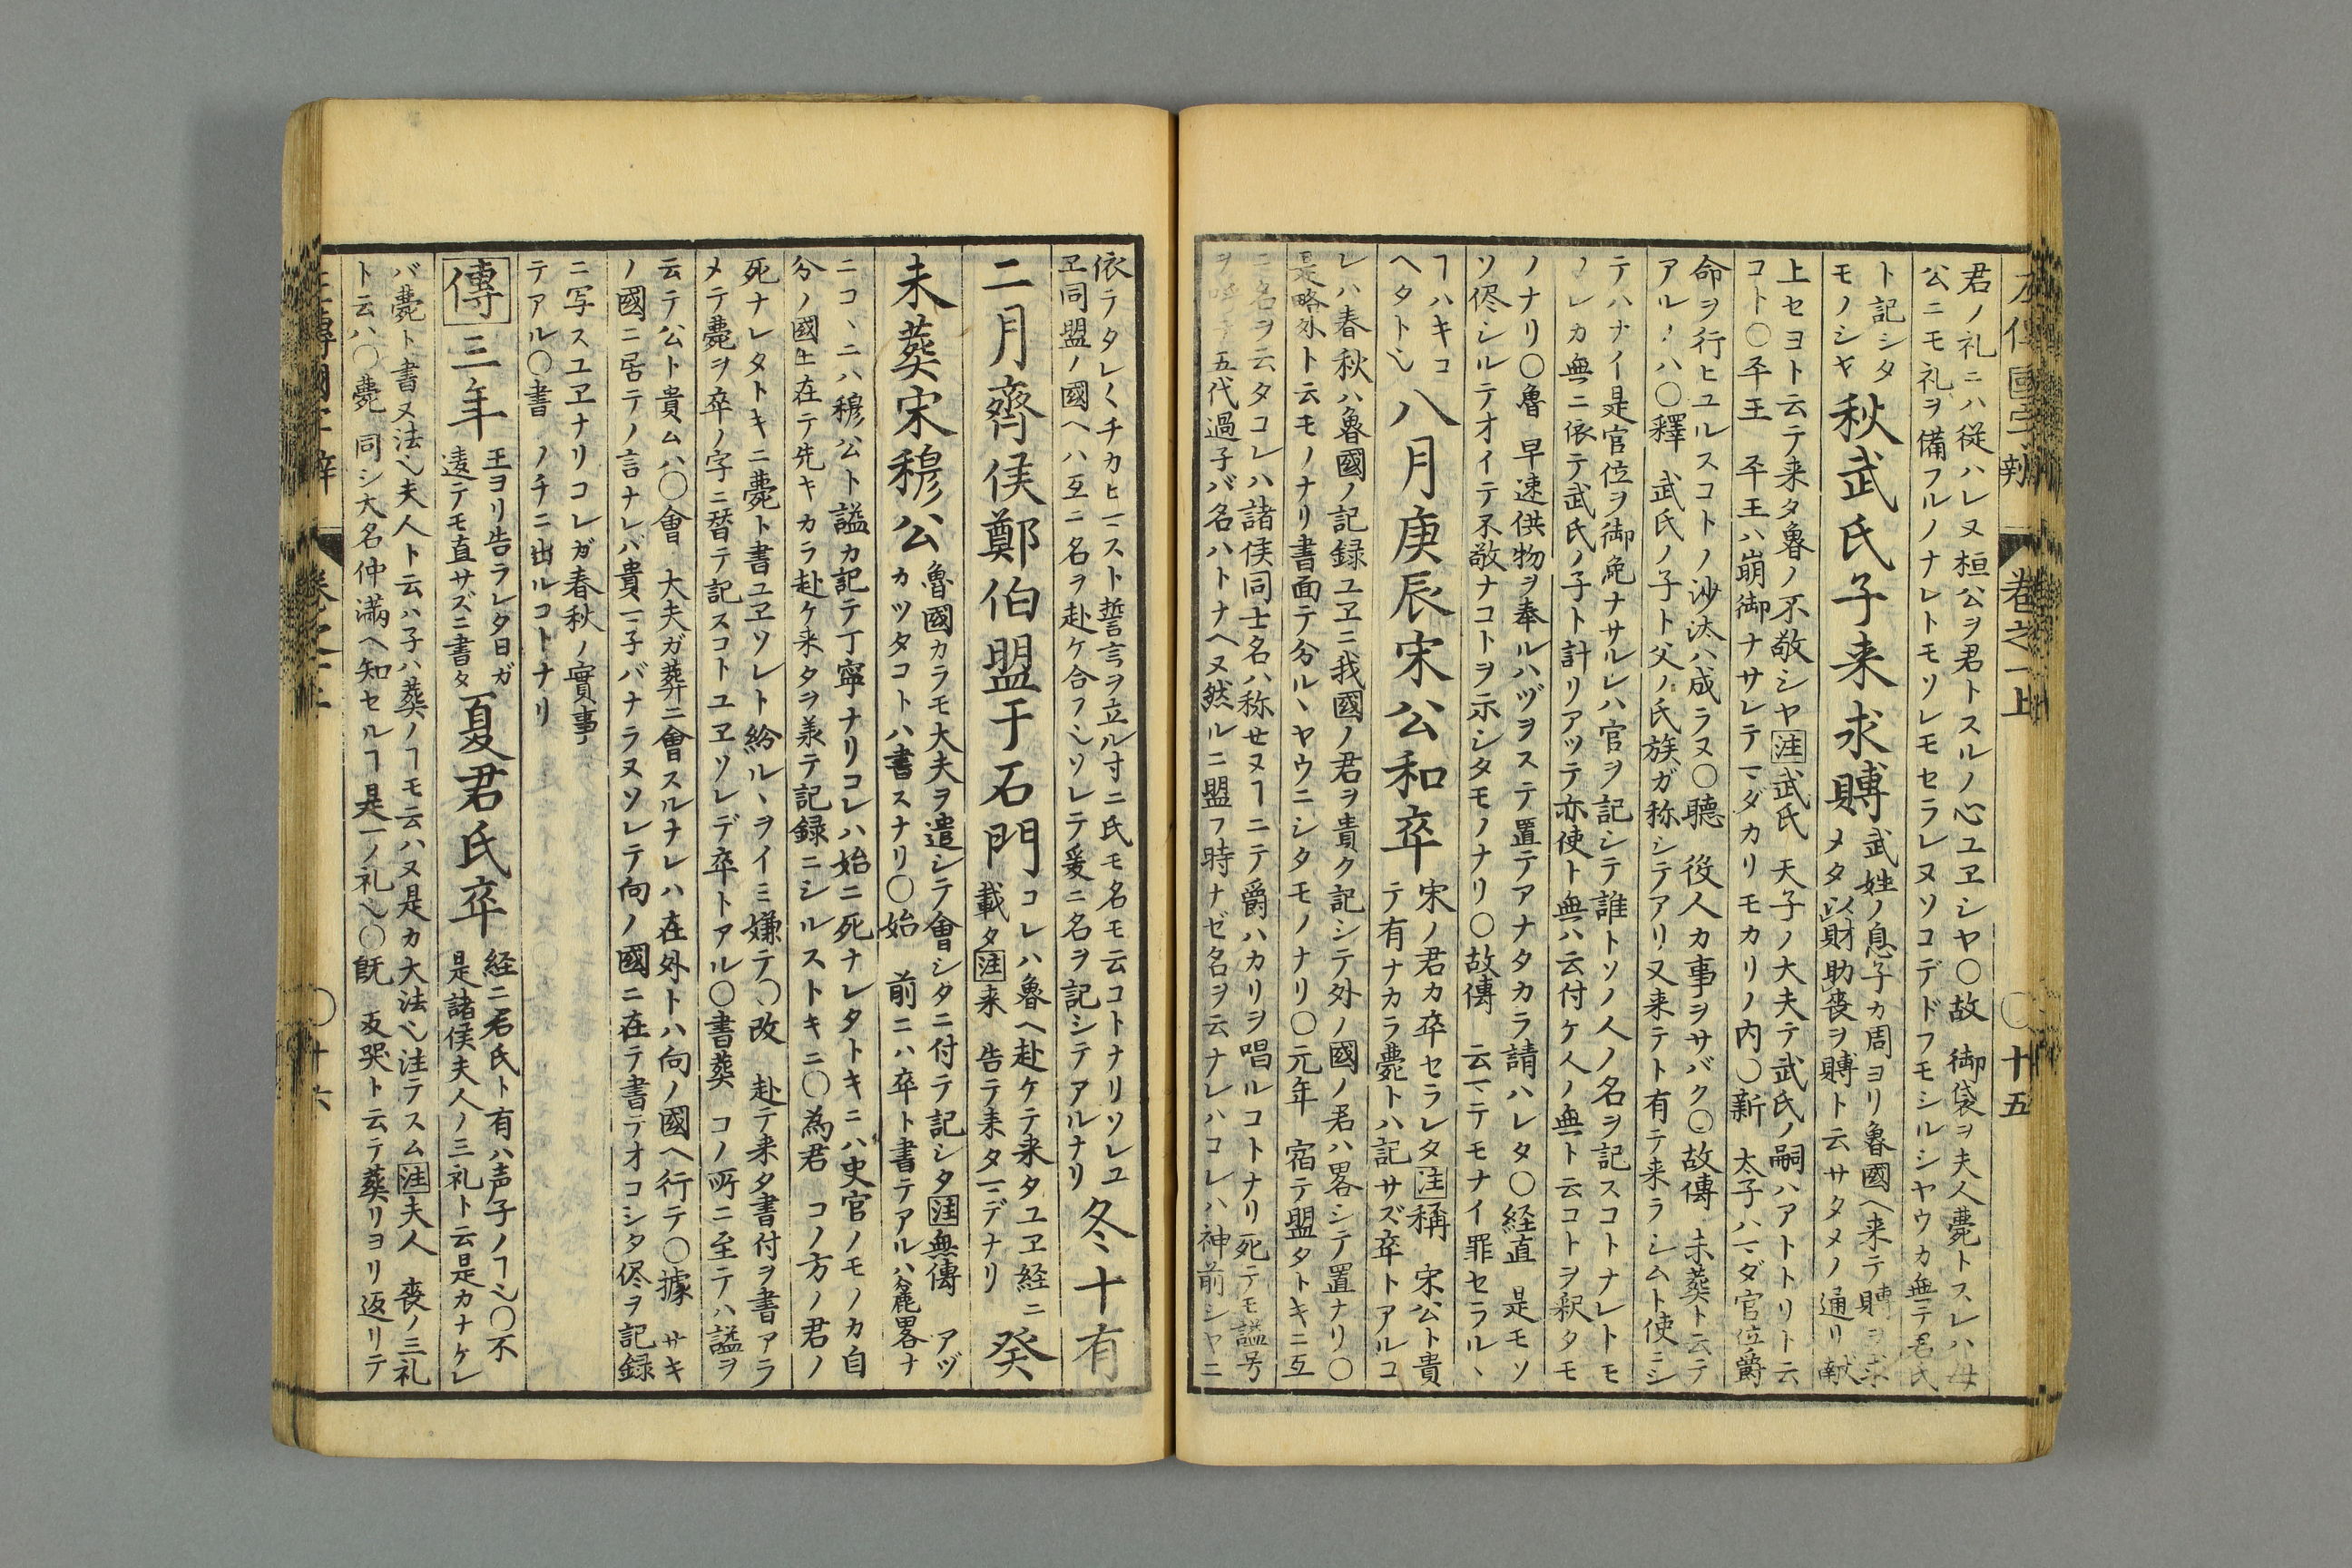 君ノ礼ニハ従ハレヌ桓公ヲ君トスルノ心ユヱシヤ〇故 御袋ヲ夫人薨トスレハ母
公ニモ礼ヲ備フルノナレトモソレモセラレヌソコデドフモシルシヤウカ無テ君氏
ト記シタ
モノシヤ
秋武氏子来求賻
武姓ノ息子カ周ヨリ魯國ヘ来テ賻ヲ求
メタ以財助喪ヲ賻ト云サタメノ通リ献
上セヨト云テ来タ魯ノ不敬シヤ注武氏 天子ノ大夫テ武氏ノ嗣ハアトトリト云
コト〇平王 平王ハ崩御ナサレテマダカリモカリノ内〇新 太子ハマダ官位爵
命ヲ行ヒユルスコトノ沙汰ハ成ラヌ〇聴 役人カ事ヲサバク〇故傳 未葬ト云テ
アルノハ〇釋 武氏ノ子ト父ノ氏族ガ称シテアリ又来テト有テ来ラシムト使ニシ
テハナイ是官位ヲ御免ナサルレハ官ヲ記シテ誰トソノ人ノ名ヲ記スコトナレトモ
ソレカ無ニ依テ武氏ノ子ト計リアツテ亦使ト無ハ云付ケ人ノ無ト云コトヲ釈タモ
ノナリ〇魯 早速供物ヲ奉ルハヅヲステ置テアナタカラ請ハレタ〇経直 是モソ
ソ侭シルテオイテ不敬ナコトヲ示シタモノナリ〇故傳 云マテモナイ罪セラルヽ
ヿハキコ
ヘタト也
八月庚辰宋公和卒
宋ノ君カ卒セラレタ注稱 宋公ト貴
テ有ナカラ薨トハ記サズ卒トアルコ
レハ春秋ハ魯國ノ記録ユヱニ我國ノ君ヲ貴ク記シテ外ノ國ノ君ハ畧シテ置ナリ〇
是略外ト云モノナリ書面テ分ルヽヤウニシタモノナリ〇元年 宿テ盟タトキニ互
ニ名ヲ云タコレハ諸侯同士名ハ称セヌヿニテ爵ハカリヲ唱ルコトナリ死テモ諡号
五代過子バ名ハトナヘヌ然ルニ盟フ時ナゼ名ヲ云ナレハコレハ神前シヤニ
依テタレ〱チカヒマスト誓言ヲ立ル寸ニ氏モ名モ云コトナリソレユ
ヱ同盟ノ國ヘハ互ニ名ヲ赴ケ合フ也ソレテ爰ニ名ヲ記シテアルナリ
冬十有
二月齊侯鄭伯盟于石門
コレハ魯ヘ赴ケテ来タユヱ経ニ
載タ注来 告テ来タマデナリ
癸
未葬宋穆公
魯國カラモ大夫ヲ遣シテ會シタニ付テ記シタ注無傳 アヅ
カツタコトハ書スナリ〇始 前ニハ卒ト書テアルハ麁畧ナ
ニコヽニハ穆公ト謚カ記テ丁寧ナリコレハ始ニ死ナレタトキニハ史官ノモノカ自
分ノ國ニ在テ先キカラ赴ケ来タヲ羕テ記録ニシルストキニ〇為君 コノ方ノ君ノ
死ナレタトキニ薨ト書ユヱソレト紛ルヽヲイミ嫌テ〇改 赴テ来タ書付ヲ書アラ
メテ薨ヲ卒ノ字ニ替テ記スコトユヱソレデ卒トアル〇書葬 コノ所ニ至テハ諡ヲ
云テ公ト貴ムハ〇會 大夫ガ葬ニ會スルナレハ在外トハ向ノ國ヘ行テ〇據 サキ
ノ國ニ居テノ言ナレバ貴マ子バナラヌソレテ向ノ國ニ在テ書テオコシタ侭ヲ記録
ニ写スユヱナリコレガ春秋ノ實事ノ
テアル〇書 ノチニ出ルコトナリ
傳三年
王ヨリ告ラレタ日ガ
遠テモ直サズニ書タ
夏君氏卒
経ニ君氏ト有ハ声子ノヿ也〇不
是諸侯夫人ノ三礼ト云是カナケレ
バ薨ト書ヌ法也夫人ト云ハ子ハ葬ノヿモ云ハヌ是カ大法也注テスム注夫人 喪ノ三礼
ト云ハ〇薨 同シ大名仲満ヘ知セルヿ是一ノ礼也〇既 反哭ト云テ葬リヨリ返リテ